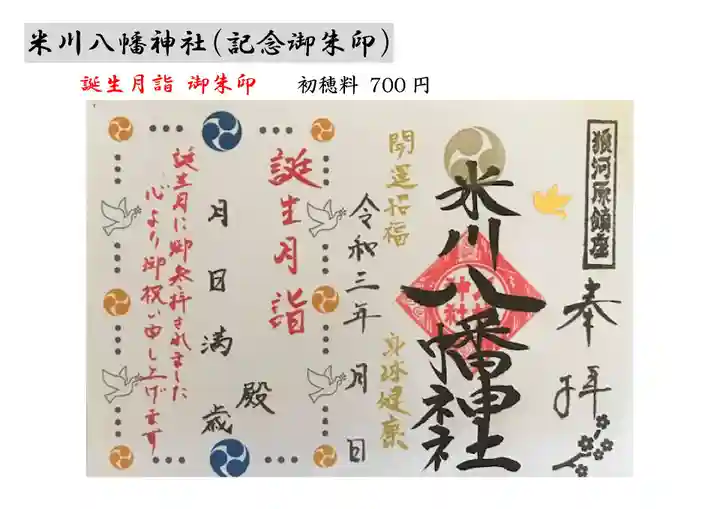 米川八幡神社(記念御朱印)
誕生月詣 御朱印　初穂料 700円
狼河原鎮座
奉拝
米川八幡神社
開運招福　身体健康
令和三年　月　日
誕生月詣
殿
月　日　満　歳
誕生月に御参拝されました
心より御祝い申し上げます